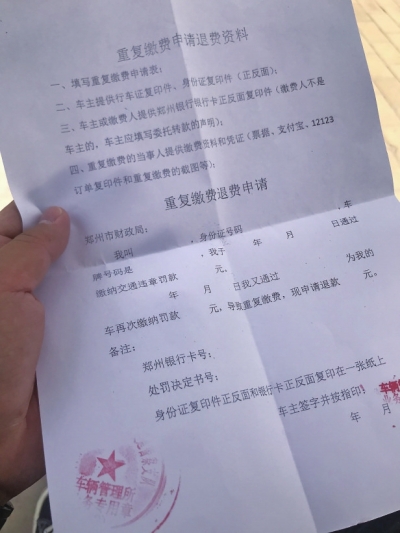 重复缴费申请退费资料
一、填写重复缴费申请表；
二、车主提供行车证复印件、身份证复印件（正反面）；
三、车主或缴费人提供郑州银行银行卡正反面复印件（缴费人不是
车主的，车主应填写委托转款的声明）；
四、重复缴费的当事人提供缴费资料和凭证（票据、支付宝、12123
订单复印件和重复缴费的截图等）；
重复缴费退费申请
郑州市财政局：
我叫 ，身份证号码 ，车
牌号码是 ，我于 年 月 日通过
缴纳交通违章罚款 元。
年 月 日我又通过 为我的
车再次缴纳罚款 元，导致重复缴费，现申请退款 元。
备注：
郑州银行卡号：
处罚决定书号：
身份证复印件正反面和银行卡正反面复印在一张纸上
车主签字并按指印
年 月
车辆管理所
车辆